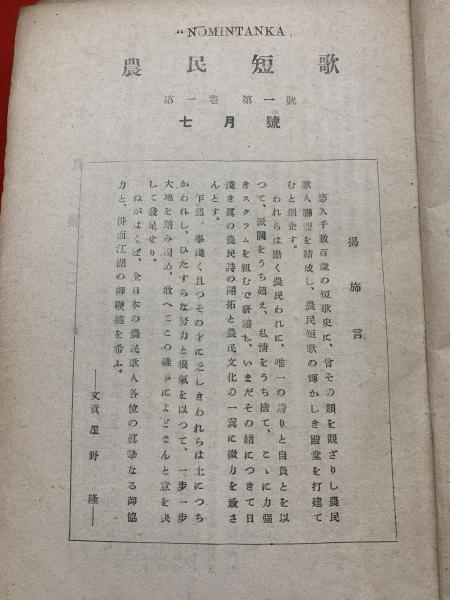 “NŌMINTANKA„
農民短歌
第一卷 第一號
七月號
揭旆言
悠久千數百歲の短歌史に、曾その類を觀ざりし農民
歌人聯盟を結成し、農民短歌の輝かしき殿堂を打建て
むと創企す。
われらは働く農民われに、唯一の誇りと自負とを以
つて、派閥をうち超え、私情をうち捨て、こゝに力强
きスクラムを組むで研鑽し、いまだその緖につきて日
淺き眞の農民詩の開拓と農民文化の一翼に微力を致さ
んとす。
乍然、學淺く且つその才に乏しきわれらは土につち
かわれし、ひたすらな努力と根氣を以つて、一步一步
大地を踏み固め、敢へてこの難事によどまんと意を決
して發足せり。
ねがはくば、全日本の農民歌人各位の眞摯なる御協
力と、併而江湖の御鞭撻を希ふ。
――文責 星野 隆――